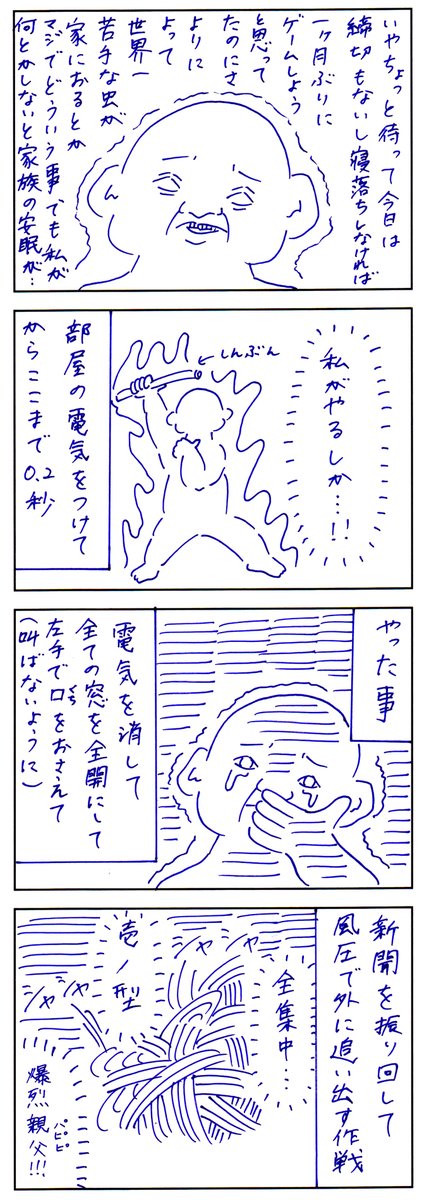 いやちょっと待って今日は
締切もないし寝落ちしなければ
一ヶ月ぶりに
ゲームしよう
と思って
たのにさ
よりに
よって
世界一
苦手な虫が
家におるとか
マジでどういう事でも私が
何とかしないと家族の安眠が…
私がやるしか…!!
しんぶん
部屋の電気をつけて
からここまで0.2秒
やった事
電気を消して
全ての窓を全開にして
左手で口をおさえて
くち
(叫ばないように)
新聞を振り回して
風圧で外に追い出す作戦
全集中…
シャシャ
壱ノ型
シャシャ
爆烈親父!!!
パピピ